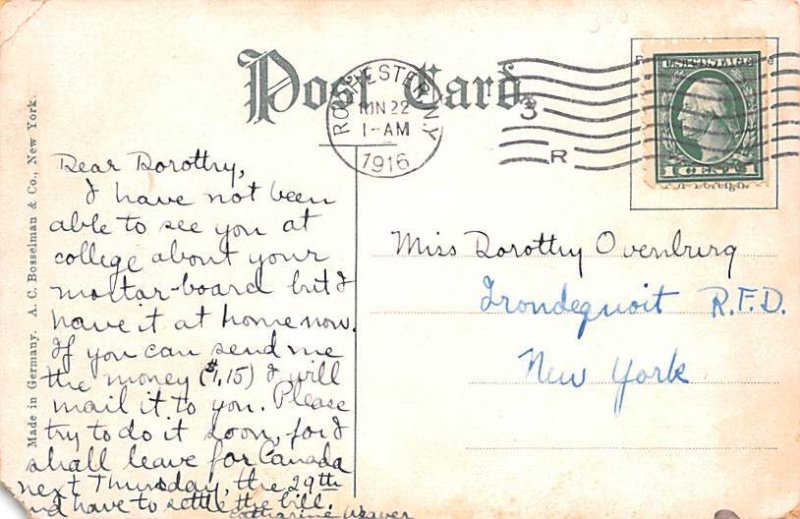 Post Card
ROCHESTER, N.Y.
JUN 22
1-AM
1916
3
R
U.S. POSTAGE
1 CENTS 1
Foreign.
Made in Germany. A. C. Bosselman & Co., New York.
Dear Dorothy,
I have not been
able to see you at
college about your
mortar-board but I
have it at home now.
If you can send me
the money ($1,15) I will
mail it to you. Please
try to do it soon, for I
shall leave for Canada
next Thursday, the 29th
and have to settle the bill.
Catharine Weaver
Miss Dorothy Ovenburg
Irondequoit R.F.D.
New York